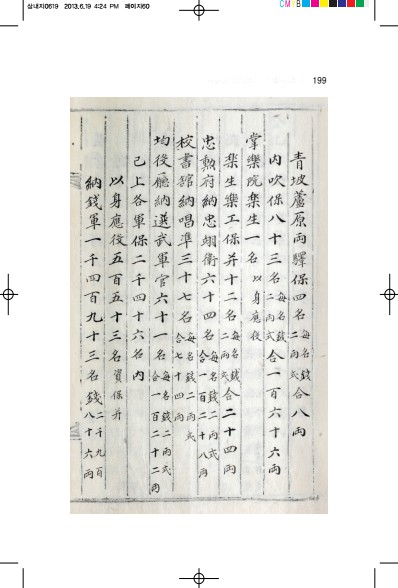 심내지0619 2013.6.19 4:24 PM 페이지60
CM B
199
靑坡蘆原兩驛保四名每名錢二兩式合八兩
內吹保八十三名每名錢二兩式合一百六十六兩
掌樂院樂生一名以身應役
樂生樂工保幷十二名每名錢二兩式合二十四兩
忠勳府納忠翊衛六十四名每名錢二兩式合一百二十八兩
校書館納唱準三十七名每名錢二兩式合七十四兩
均役廳納選武軍官六十一名每名錢二兩式合一百二十二兩
已上各軍保二千四十六名內
以身應役五百五十三名資保幷
納錢軍一千四百九十三名錢二千九百八十六兩